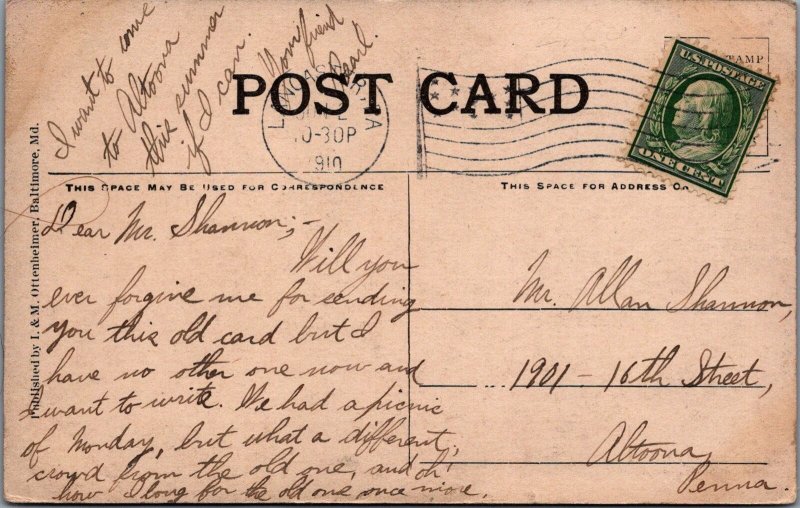 POST CARD
THIS SPACE MAY BE USED FOR CORRESPONDENCE
THIS SPACE FOR ADDRESS O
Published by I. & M. Ottenheimer, Baltimore, Md.
U.S. POSTAGE
ONE CENT
TAMP
10-30P
1910
Dear Mr. Shannon;-
Will you
ever forgive me for sending
you this old card but I
have no other one now and
want to write. We had a picnic
of Monday, but what a different
crowd from the old one, and oh!
how I long for the old one once more.
I want to come
to Altoona
this summer
if I can.
Your friend
Pearl.
Mr. Allan Shannon,
1901-16th Street,
Altoona,
Penna.